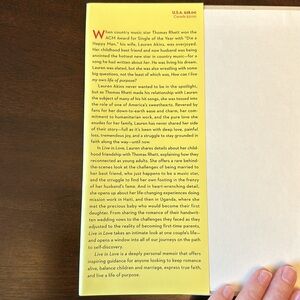 U.S.A. $28.00
Canada $35.00
When country music star Thomas Rhett won the
ACM Award for Single of the Year with "Die a
Happy Man," his wife, Lauren Akins, was overjoyed.
Her childhood best friend and now husband was being
anointed the hottest new star in country music—for a
song he had written about her. He was living his dream.
Lauren was elated, but she was also wrestling with some
big questions, not the least of which was, How can I live
my own life of purpose?
Lauren Akins never wanted to be in the spotlight,
but as Thomas Rhett made his relationship with Lauren
the subject of many of his hit songs, she was tossed into
the role of one of America's sweethearts. Revered by
fans for her down-to-earth ease and charm, her com-
mitment to humanitarian work, and the pure love she
exudes for her family, Lauren has never shared her side
of their story—full as it's been with deep love, painful
loss, tremendous joy, and a struggle to stay grounded in
faith along the way—until now.
In Live in Love, Lauren shares details about her child-
hood friendship with Thomas Rhett, explaining how they
reconnected as young adults. She offers a rare behind-
the-scenes look at the challenges of being married to
her best friend, who just happens to be a music star,
and the struggle to find her own footing in the frenzy
of her husband's fame. And in heart-wrenching detail,
she opens up about her life-changing experiences doing
mission work in Haiti, and then in Uganda, where she
met the precious baby who would become their first
daughter. From sharing the romance of their handwrit-
ten wedding vows to the challenges they faced as they
adjusted to the reality of becoming first-time parents,
Live in Love takes an intimate look at one couple's life—
and opens a window into all of our journeys on the path
to self-discovery.
Live in Love is a deeply personal memoir that offers
inspiring guidance for anyone looking to keep romance
alive, balance children and marriage, express true faith,
and live a life of purpose.